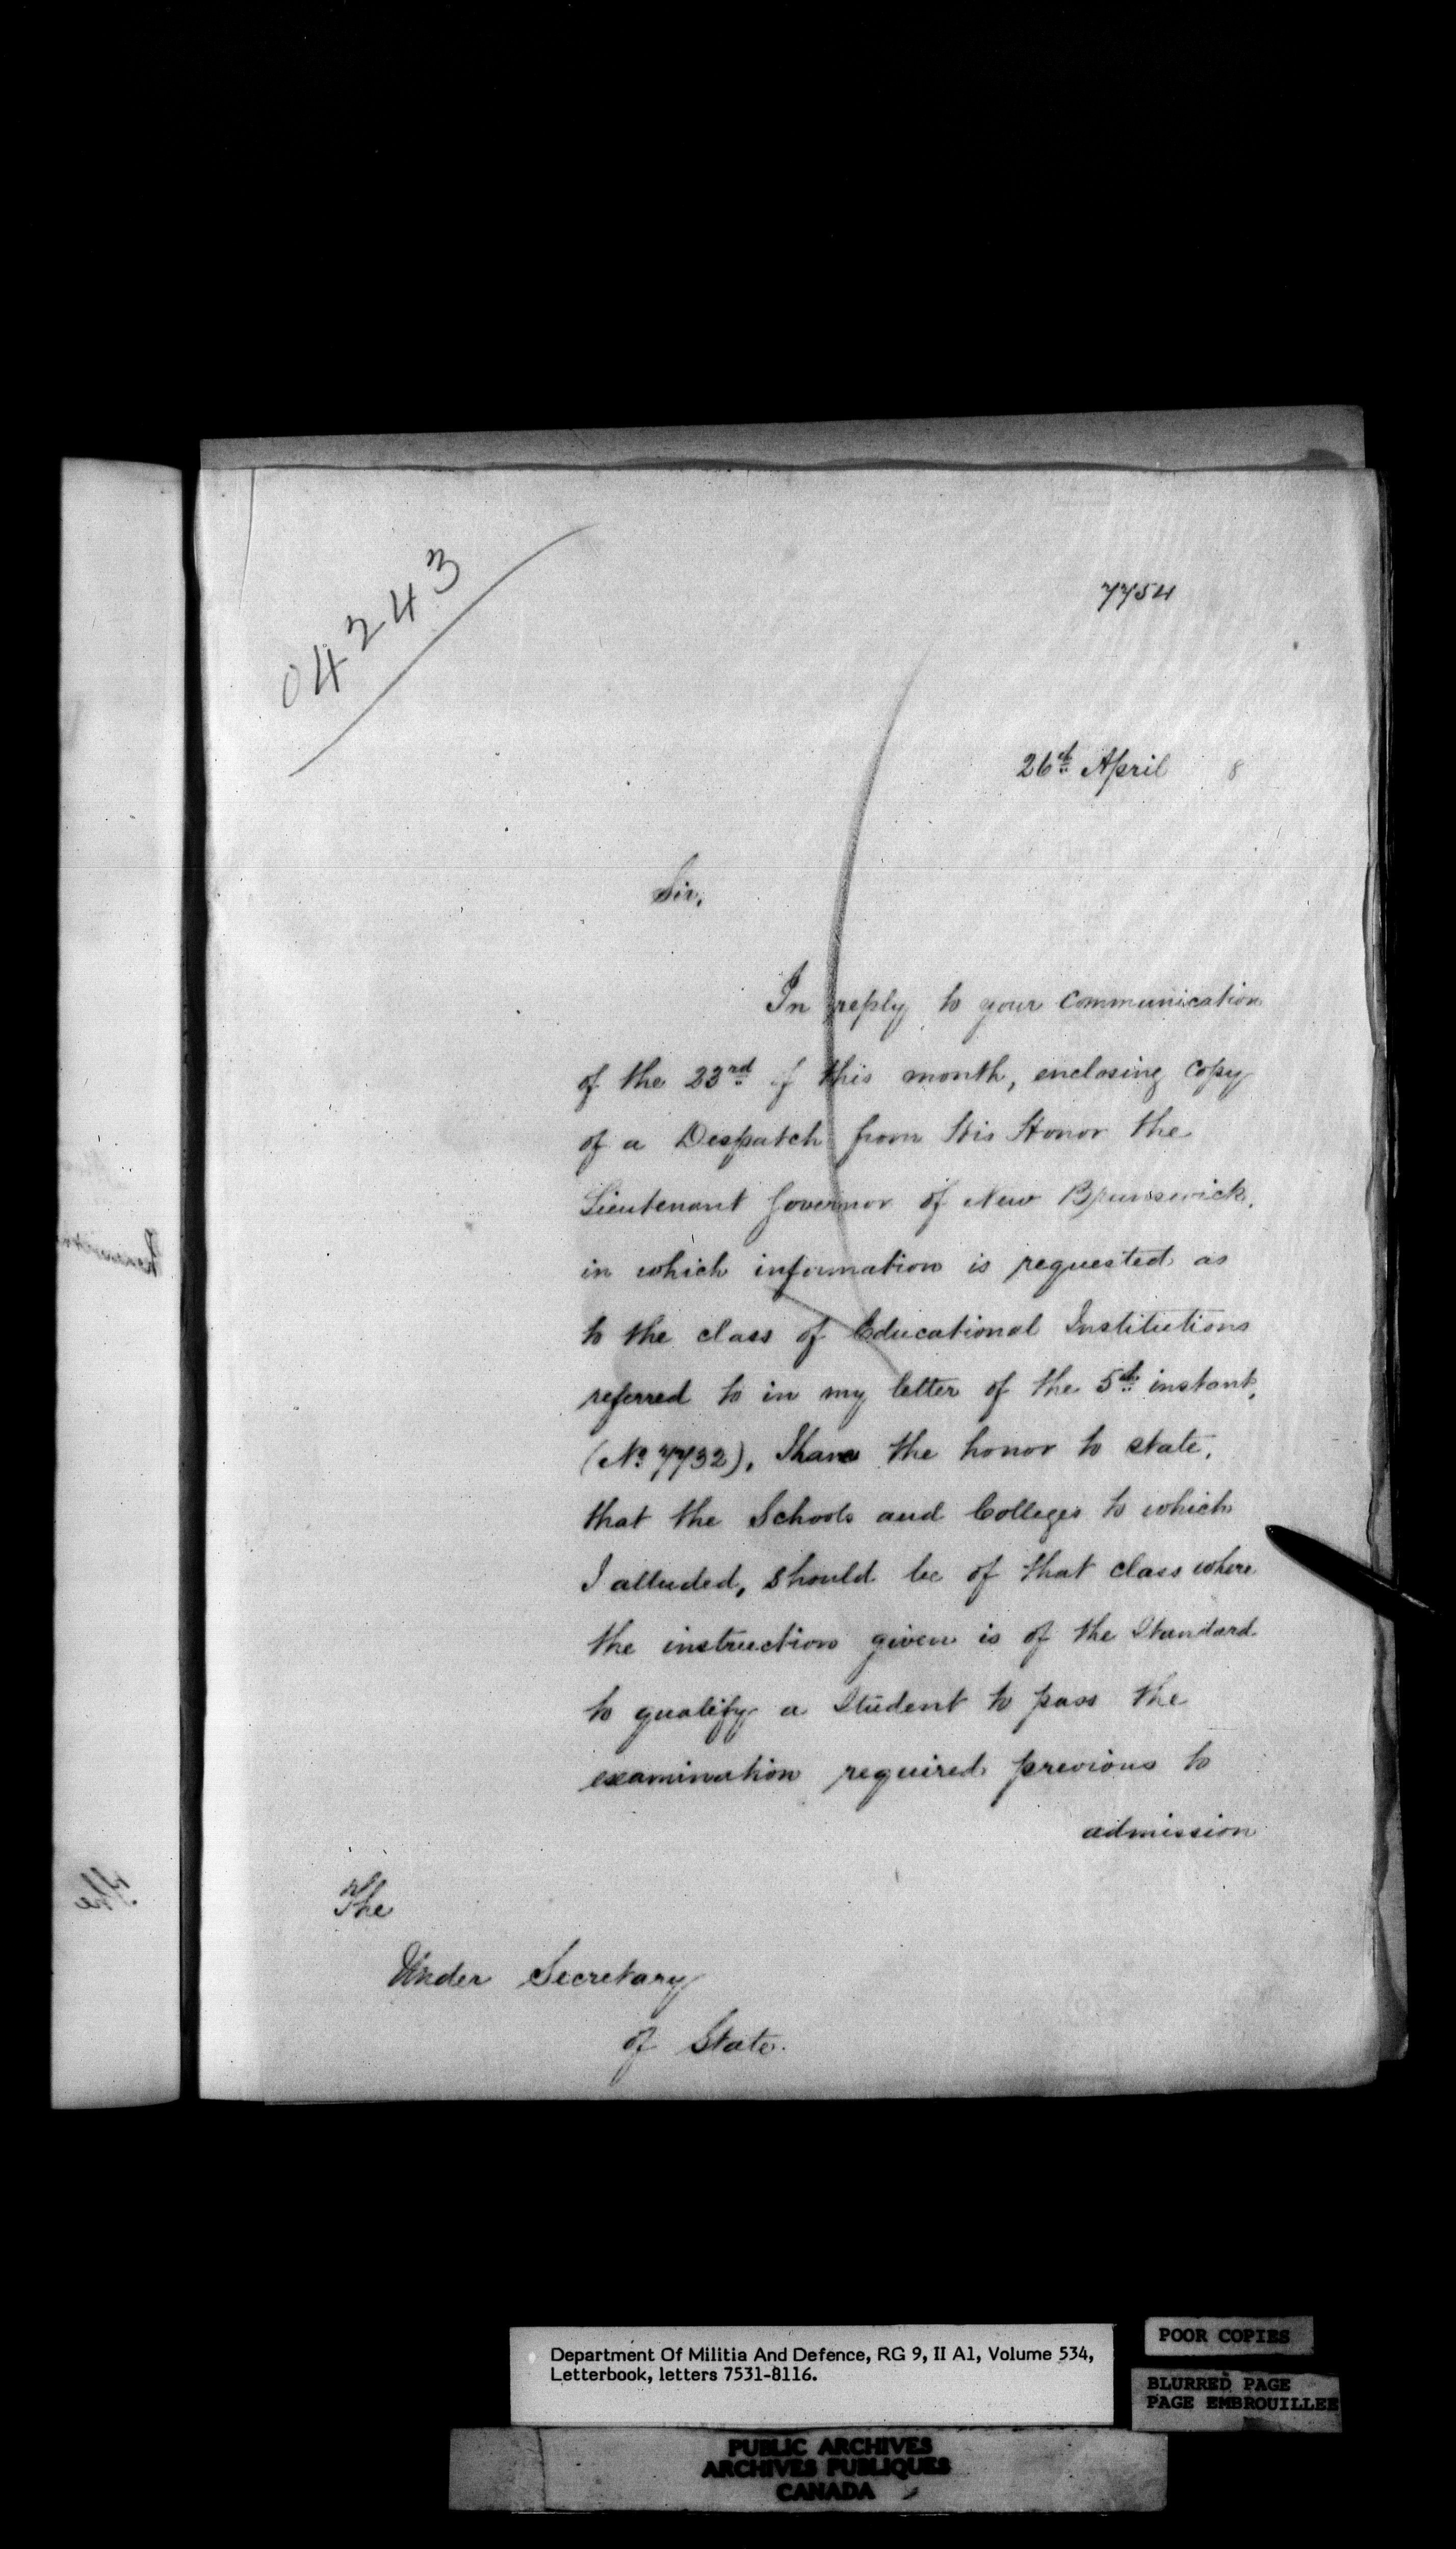 04243
7754
26th April 8
Sir,
In reply to your communication
of the 23rd of this month, enclosing copy
of a Despatch from His Honor the
Lieutenant Governor of New Brunswick,
in which information is requested as
to the class of Educational Institutions
referred to in my letter of the 5th instant,
(No 7732), I have the honor to state,
that the Schools and Colleges to which
I alluded, should be of that class where
the instruction given is of the Standard
to qualify a Student to pass the
examination required previous to
admission
The
Under Secretary
of State.
The
Department Of Militia And Defence, RG 9, II A1, Volume 534,
Letterbook, letters 7531-8116.
POOR COPIES
BLURRED PAGE
PAGE EMBROUILLEE
PUBLIC ARCHIVES
ARCHIVES PUBLIQUES
CANADA